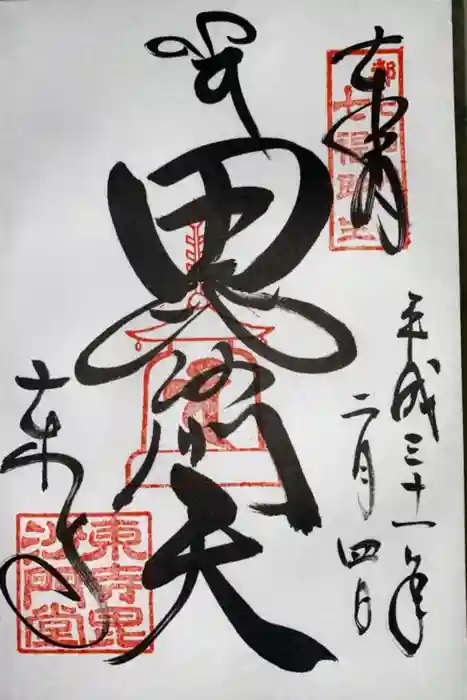 奉拝
平成三十一年
二月四日
毘沙門天
東寺
東寺毘
沙門堂